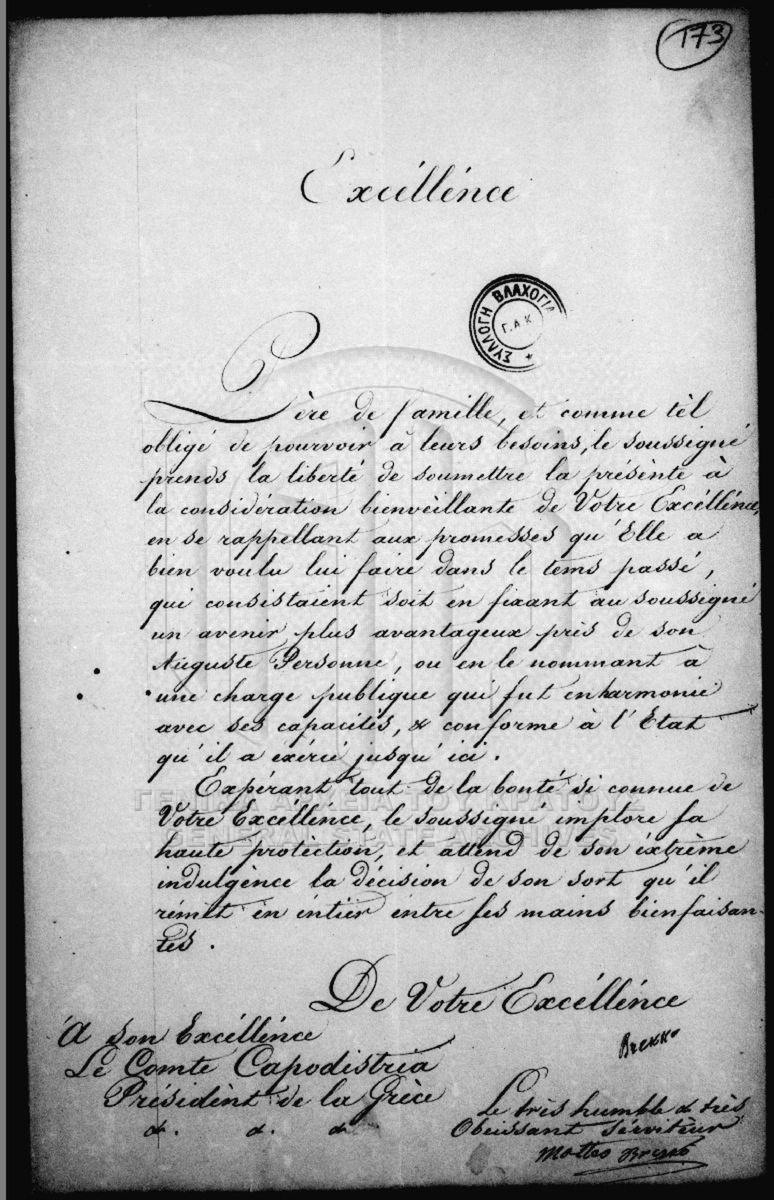 173
Excéllénce
ΣΥΛΛΟΓΗ ΒΛΑΧΟΓΙΑ
Γ.Α.Κ.
Père de famille, et comme tèl
obligé de pourvoir à leurs besoins, le soussigné
prends la liberté de soumettre la présènte à
la considération bienvèillante de Votre Excéllénce,
en se rappellant aux promesses qu'Elle a
bien voulu lui faire dans le tems passé,
qui consistaient soit en fixant au soussigné
un avenir plus avantageux près de son
Auguste Personne, ou en le nommant à
une charge publique qui fut en harmonie
avec ses capacités, & conforme à l'Etat
qu'il a exércé jusqu'ici.
Expérant tout de la bonté si connue de
Votre Excéllénce, le soussigné implore sa
haute protèction, et attend de son éxtrème
indulgènce la décision de son sort qu'il
rémet en éntier entre ses mains bienfaisan-
tes.
ΓΕΝΙΚΑ ΑΡΧΕΙΑ ΤΟΥ ΚΡΑΤΟΥΣ
GENERAL STATE ARCHIVES
De Votre Excéllénce
À son Excéllénce
Le Comte Capodistria
Présidènt de la Grèce
&. &. &
Le très humble & très
Obeissant Sérvitèur
Matteo